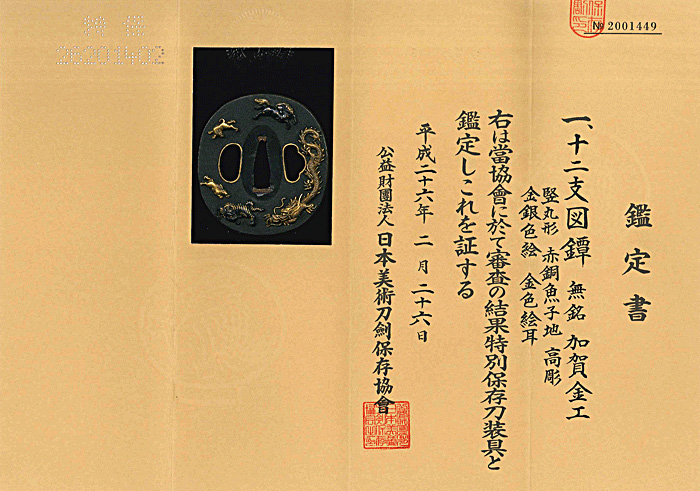 № 2001449
鑑定書
一、十二支図鐔 無銘 加賀金工
竪丸形 赤銅魚子地 高彫
金銀色絵 金色絵耳
右は當協會に於て審査の結果特別保存刀装具と
鑑定しこれを証する
平成二十六年 二月 二十六日
公益財團法人 日本美術刀劍保存協會
特保
26201402